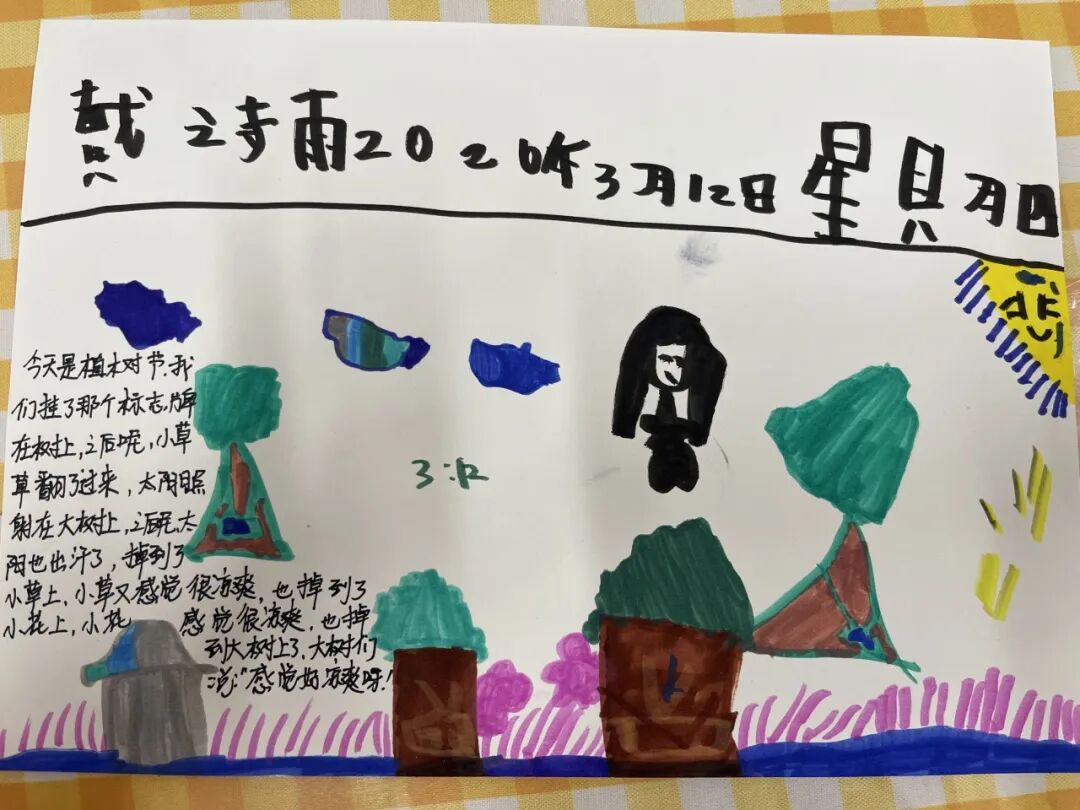 戴诗雨2020年3月12日星期四
今天是植树节.我
们挂了那个标志.牌
在树上,之后呢,小草
草翻了过来,太阳照
射在大树上,之后呢,太
阳也出汗了,掉到了
小草上,小草又感觉很凉爽,也掉到了
小花上,小花感觉很凉爽,也掉
到大树上了,大树们
说:“感觉好凉爽呀!”